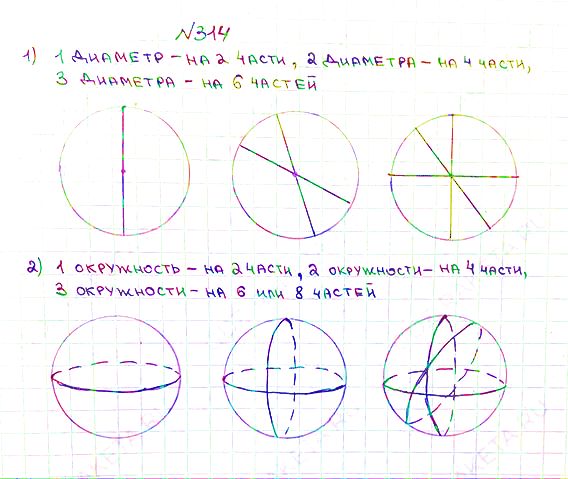 №314
1) 1 ДИАМЕТР - НА 2 ЧАСТИ, 2 ДИАМЕТРА - НА 4 ЧАСТИ,
3 ДИАМЕТРА - НА 6 ЧАСТЕЙ
2) 1 ОКРУЖНОСТЬ - НА 2 ЧАСТИ, 2 ОКРУЖНОСТИ - НА 4 ЧАСТИ,
3 ОКРУЖНОСТИ - НА 6 ИЛИ 8 ЧАСТЕЙ